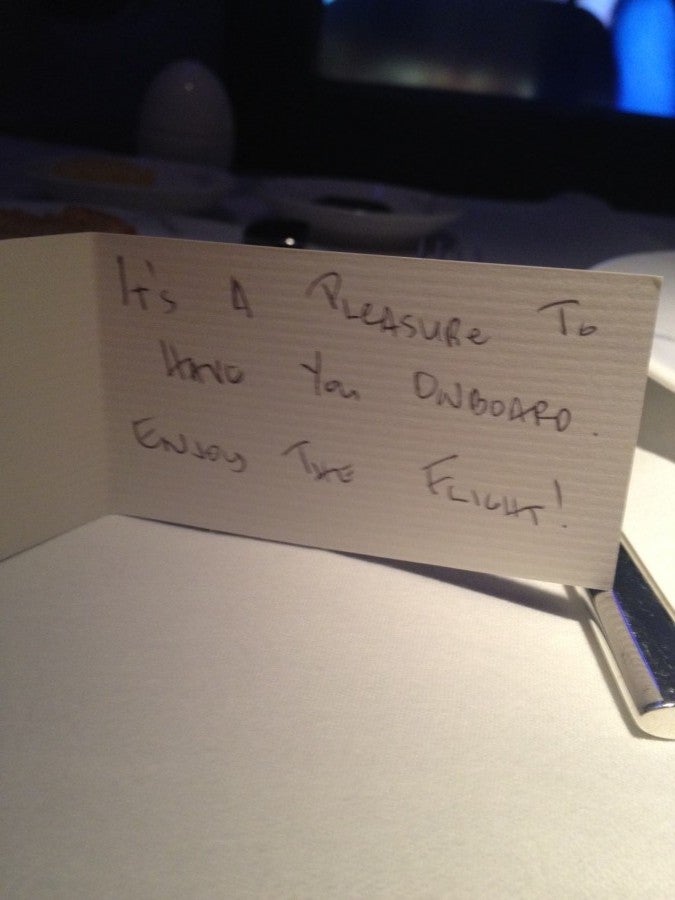 It's A PLEASURe To
HAVe You ONBOARD.
ENJoy THe FLIGHT!